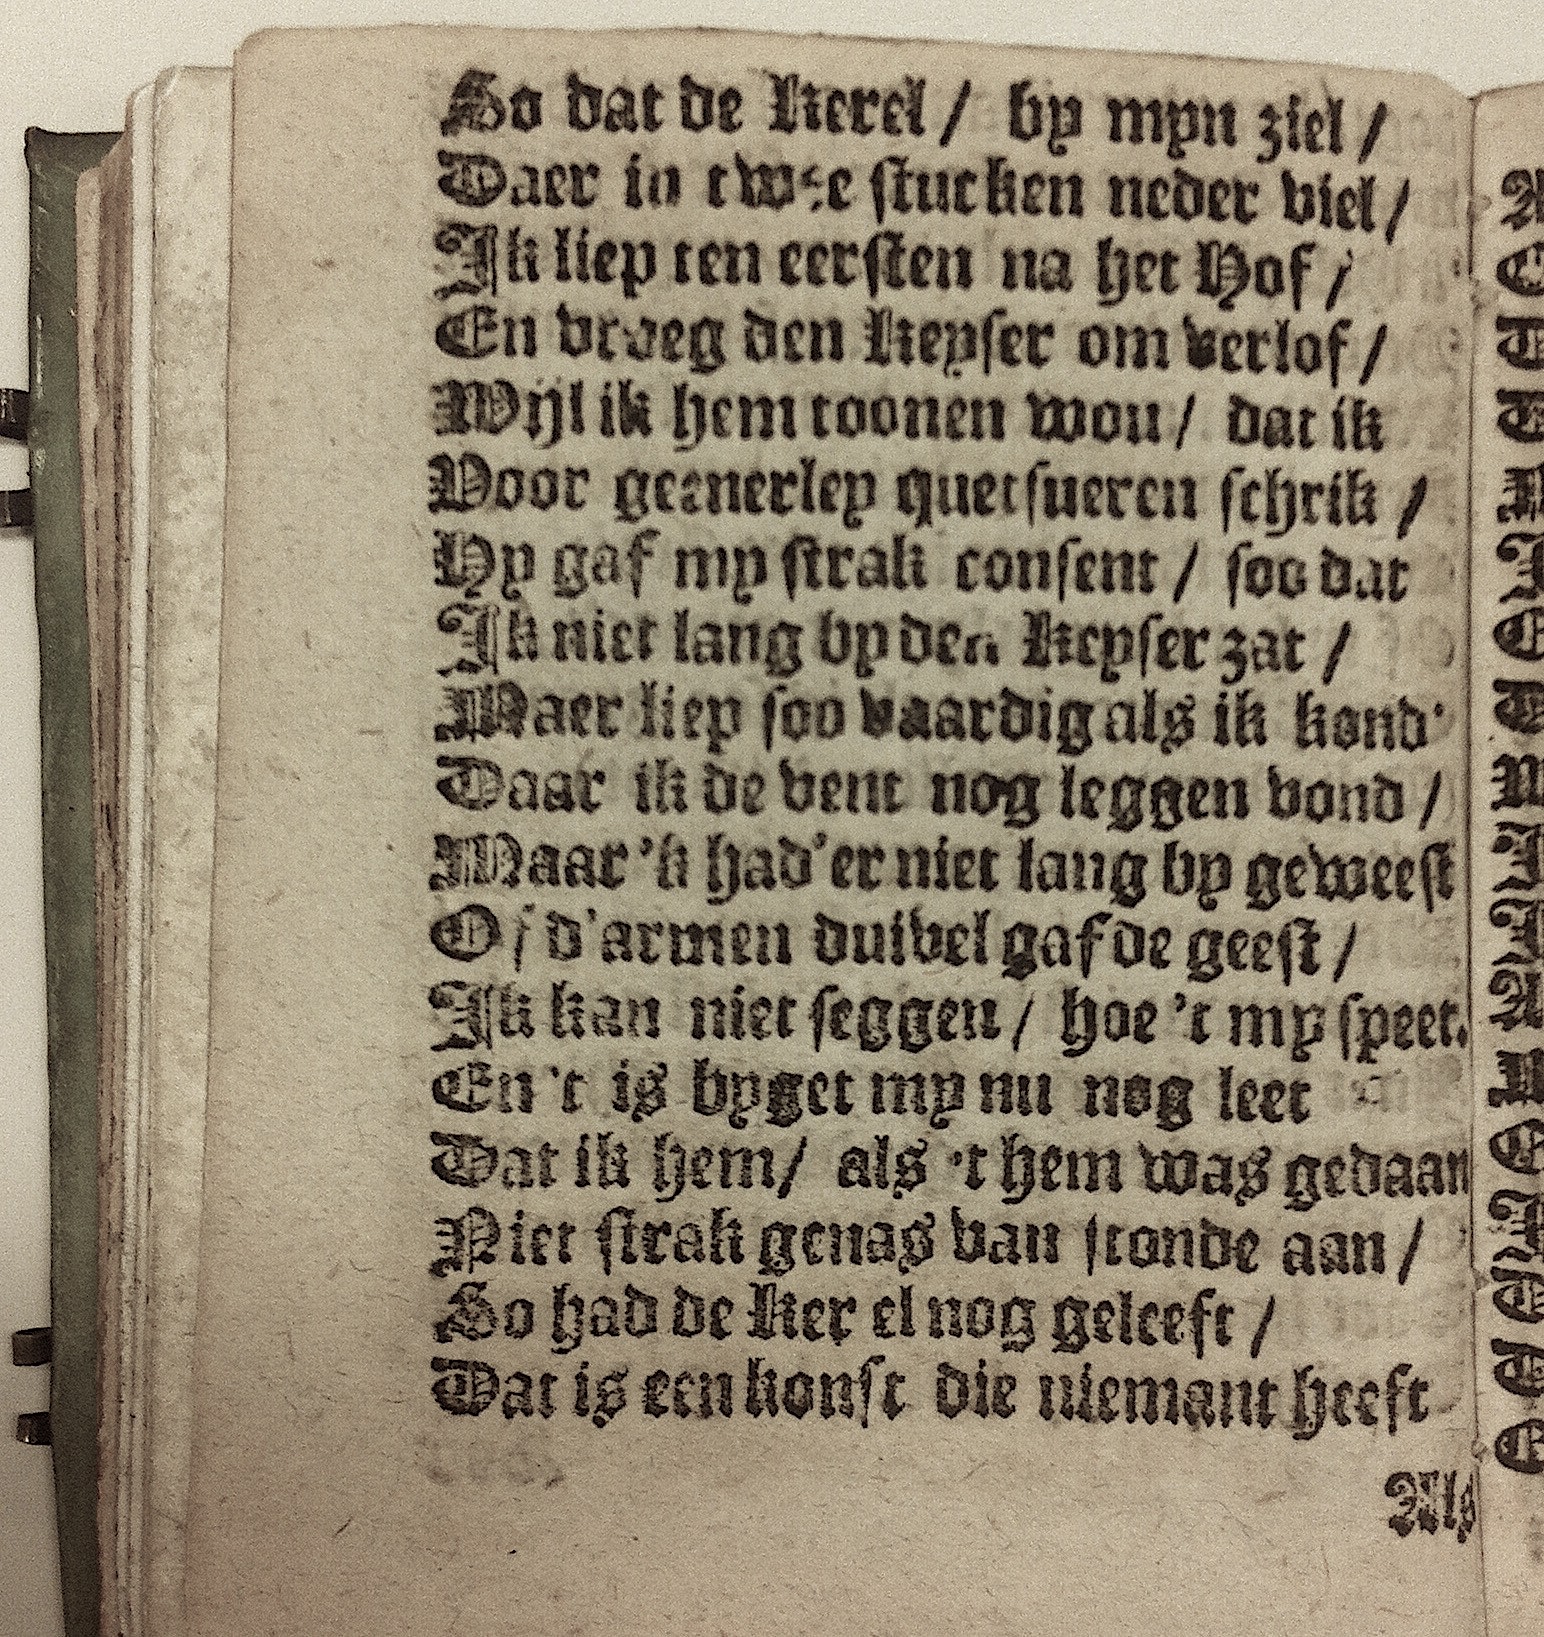 So dat de Kerel / by myn ziel /
Daer in twee stucken neder viel /
Ik liep ten eersten na het Hof /
En vraeg den Keyser om verlof /
Wijl ik hem toonen wou / dat ik
Voor geenerley quetsueren schrik /
Hy gaf my strak consent / soo dat
Ik niet lang by den Keyser zat /
Maer liep soo vaardig als ik kond'
Daar ik de vent nog leggen vond /
Maar 'k had'er niet lang by geweest
Of d'armen duivel gaf de geest /
Ik kan niet seggen / hoe 't my speet.
En 't is byget my nu nog leet
Dat ik hem / als 't hem was gedaan
Niet strak genas van stonde aan /
So had de Ker el nog geleeft /
Dat is een konst die niemant heeft
Als